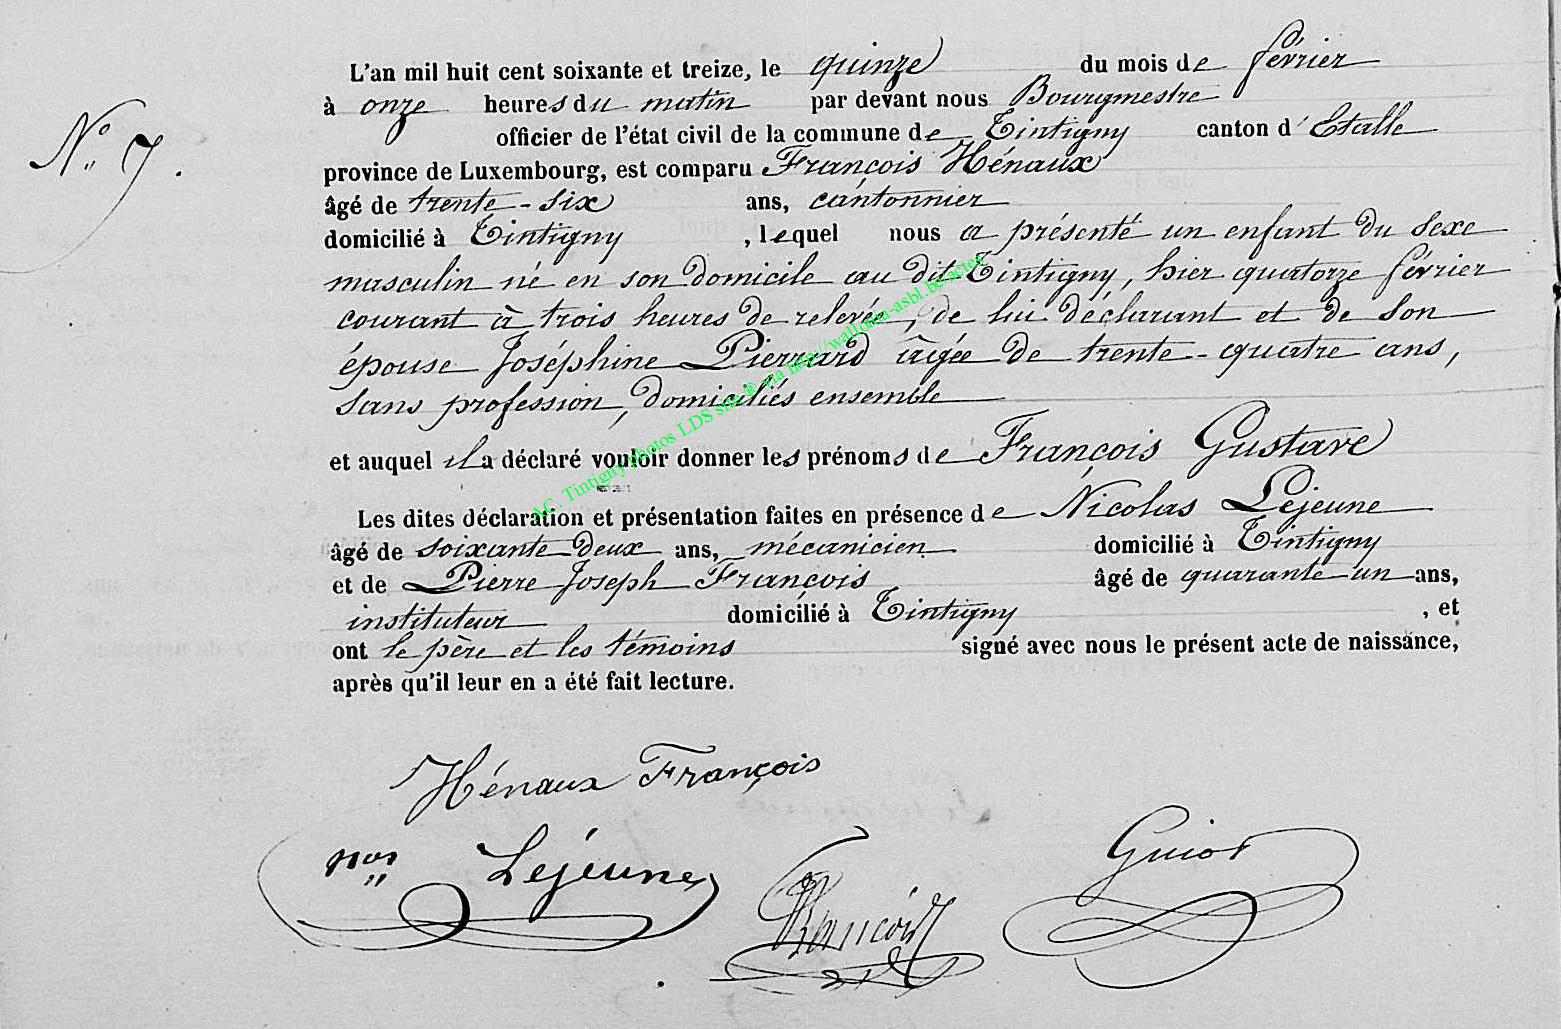 L'an mil huit cent soixante et treize, le quinze du mois de février
à onze heures du matin par devant nous Bourgmestre
officier de l'état civil de la commune de Tintigny canton d'Etalle
N° 7.
province de Luxembourg, est comparu François Hénaux
âgé de trente-six ans, cantonnier
domicilié à Tintigny, lequel nous a présenté un enfant du sexe
masculin né en son domicile au dit Tintigny, hier quatorze février
courant à trois heures de relevée, de lui déclarant et de son
épouse Joséphine Pierrard âgée de trente-quatre ans,
sans profession, domiciliés ensemble
et auquel il a déclaré vouloir donner les prénoms de François Gustave
AC. Tintigny photos LDS site ® via http://wallonia-asbl.be/actes
Les dites déclaration et présentation faites en présence de Nicolas Lejeune
âgé de soixante-deux ans, mécanicien domicilié à Tintigny
et de Pierre Joseph François âgé de quarante-un ans,
instituteur domicilié à Tintigny, et
ont le père et les témoins signé avec nous le présent acte de naissance,
après qu'il leur en a été fait lecture.
Hénaux François
Nas Lejeune
François
Guiot